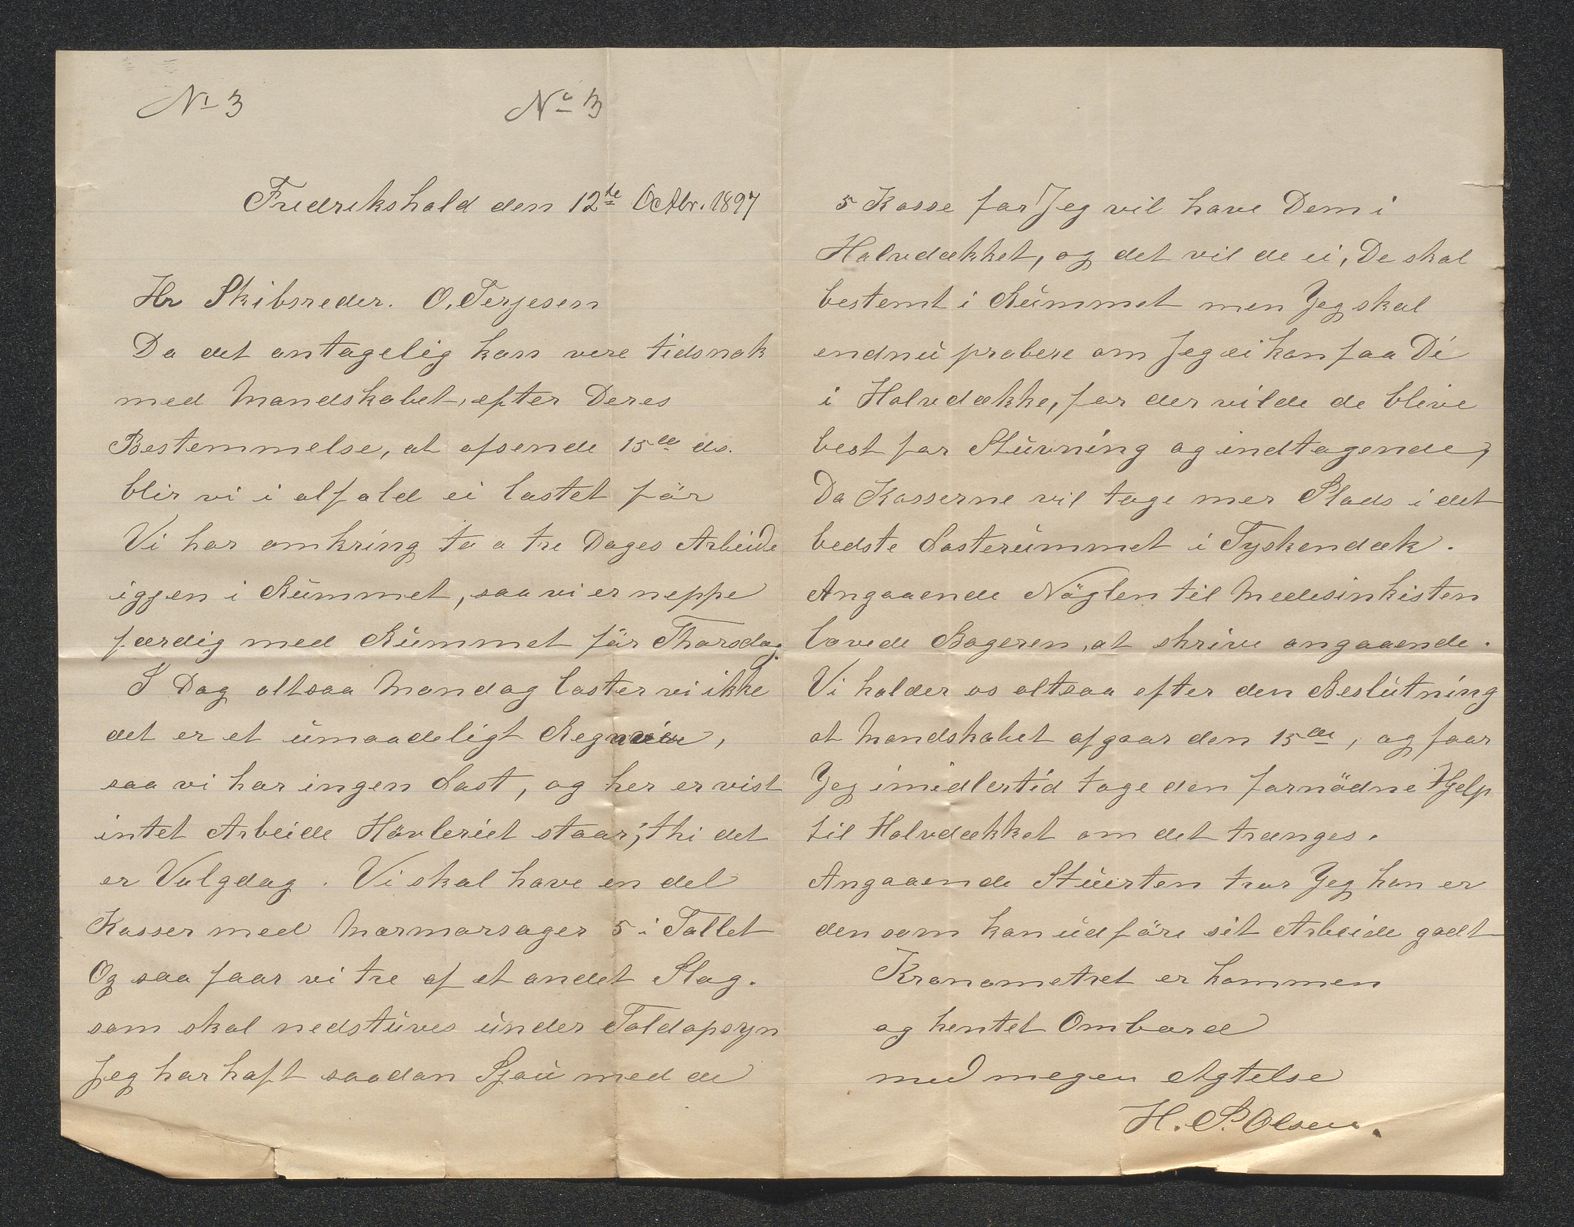 No 3
No 3
Fredrikshald den 12te Octbr. 1897
Hr Skibsreder. O. Terjesen
Da det antagelig kan vere tidsnok
med Mandskabet, efter Deres
Bestemmelse, at afsende 15de ds.
blir vi i alfald ei lastet för
Vi har omkring to a tre Dages Arbeide
iggen i Rummet, saa vi er neppe
færdig med Rummet för Thorsdag.
I Dag altsaa Mandag laster vi ikke
det er et umaadeligt Regnveir,
saa vi har ingen Last, og her er vist
intet Arbeide Høvleriet staar, thi det
er Valgdag. Vi skal have en del
Kasser med Marmorsager 5 i Tallet
Og saa faar vi tre af et andet Slag.
som skal nedstuves under Toldopsyn
Jeg har haft saadan Sjau med de
5 Kasse for Jeg vil have Dem i
Halvdækket, og det vil de ei, De skal
bestemt i Rummet men Jeg skal
endnu probere om Jeg ei kan faa Di
i Halvdække, for der vilde de blive
best for Stuvning og indtagende,
Da Kasserne vil tage mer Plads i det
bedste Lasterummet i Tyskendæk.
Angaaende Nöglen til Medesinkisten
lovede Bageren, at skrive angaaende.
Vi holder os altsaa efter den Beslutning
at Mandskabet afgaar den 15de, og faar
Jeg imidlertid tage den fornödne Hjelp
til Halvdækket om det trænges.
Angaaende Stuerten tror Jeg han er
den som kan udföre sit Arbeide godt
Kronometret er kommen
og hentet Ombord
med megen Agtelse
H. P. Olsen.